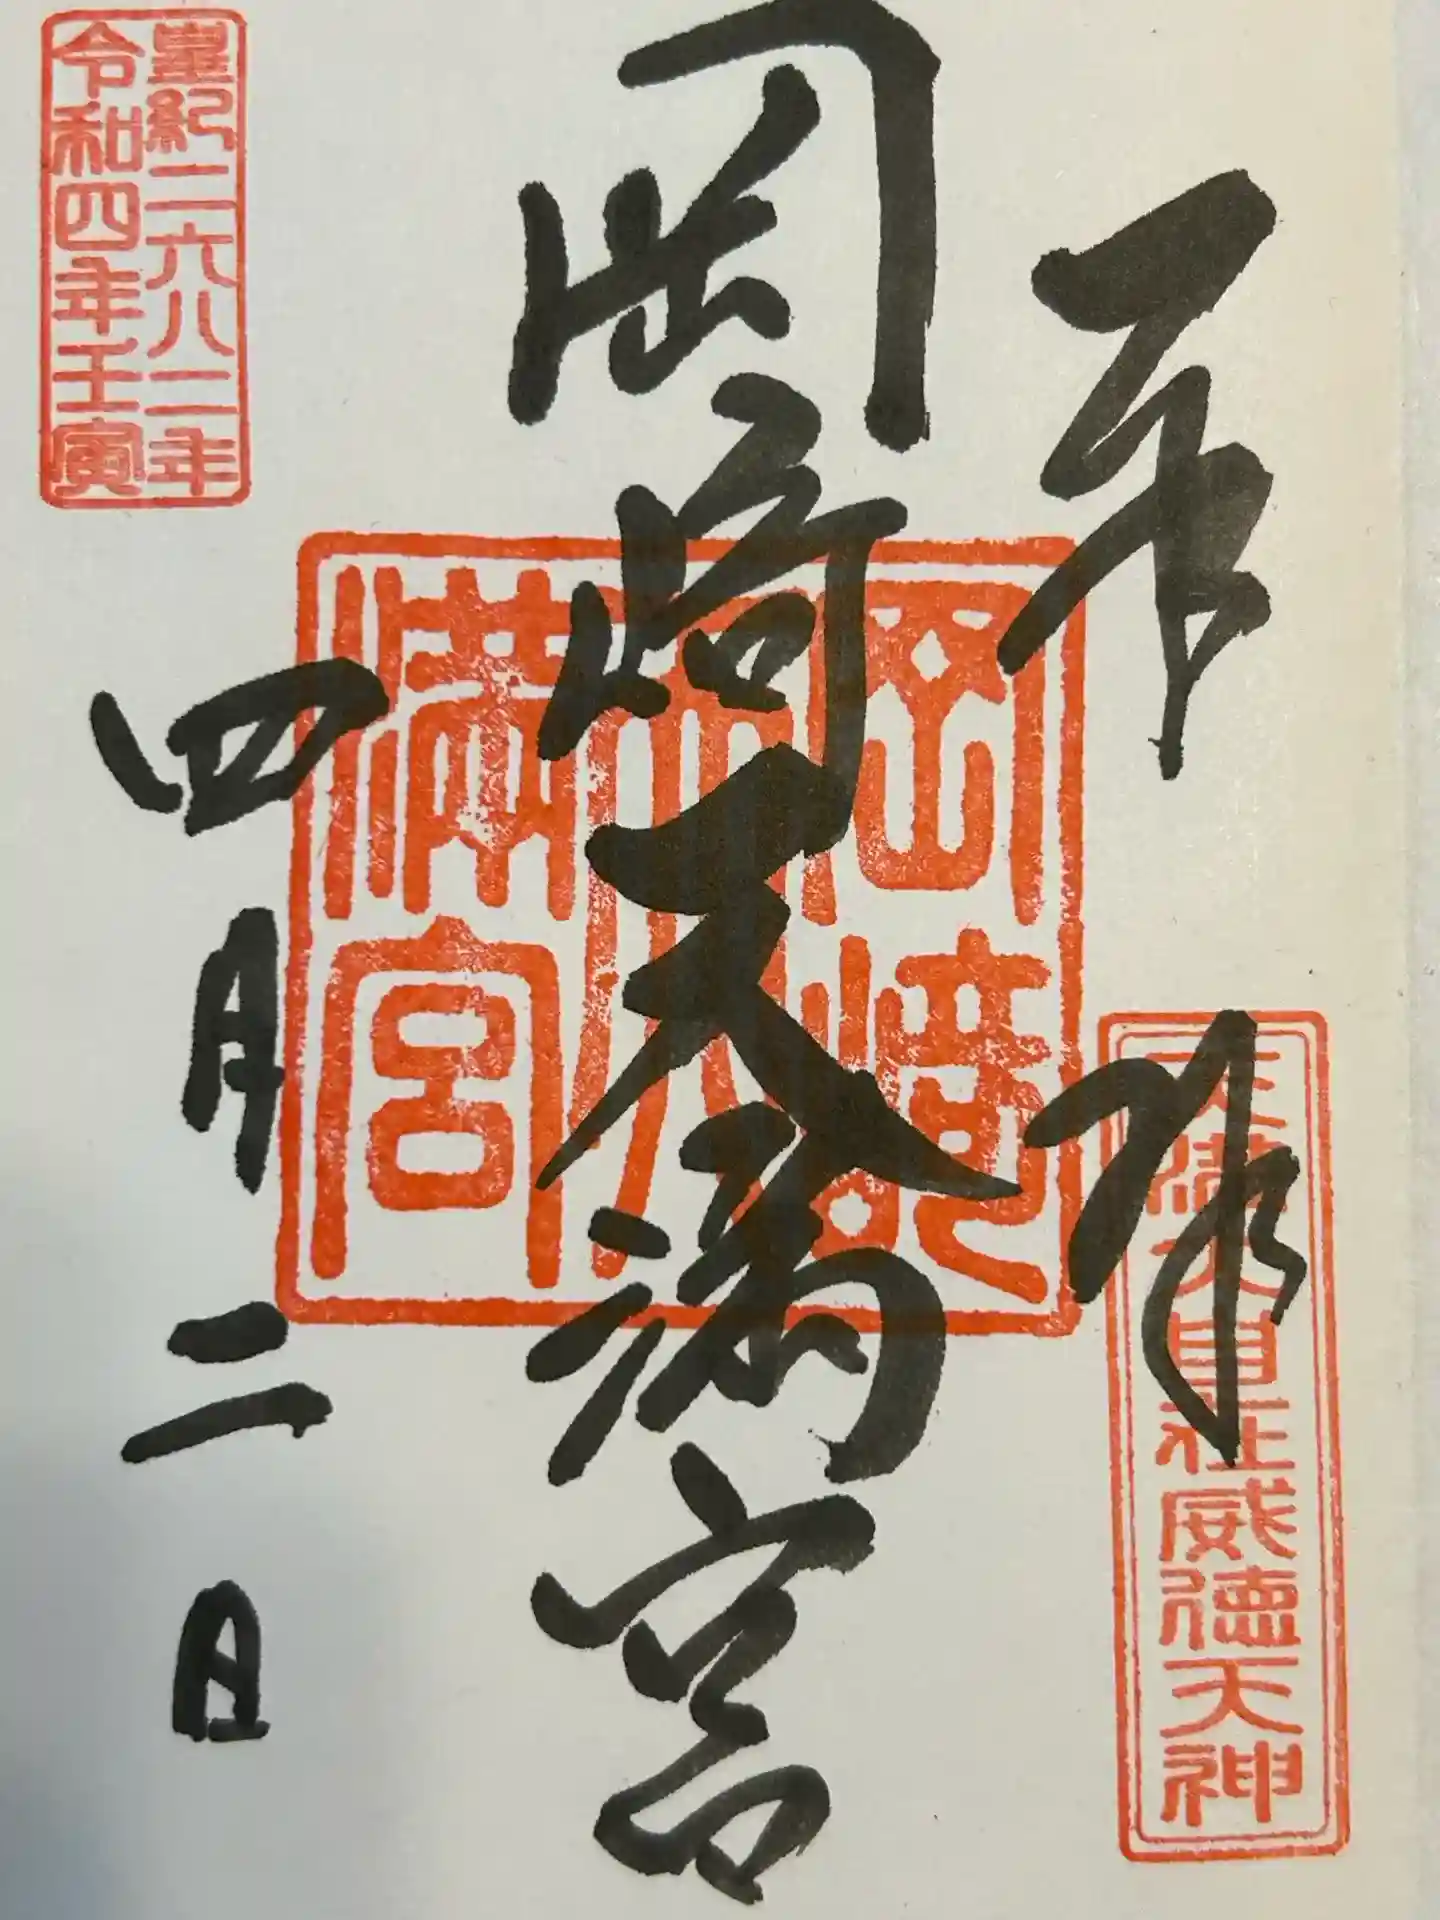 奉拝
天満大自在威徳天神
岡崎天満宮
岡崎
天
満宮
皇紀二六八二年
令和四年壬寅
四月二日